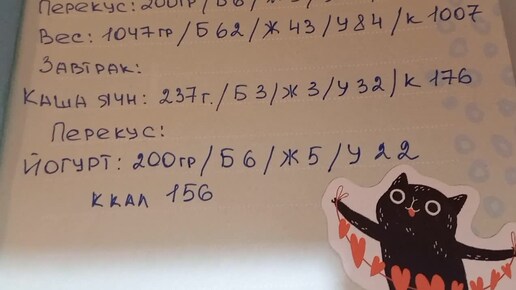 Перекус: 200гр / Б 6 /
Вес: 1047гр / Б 62 / Ж 43 / У 84 / К 1007
Завтрак:
Каша ячн: 237 г. / Б 3 / Ж 3 / У 32 / К 176
Перекус:
Йогурт: 200гр / Б 6 / Ж 5 / У 22
ккал 156